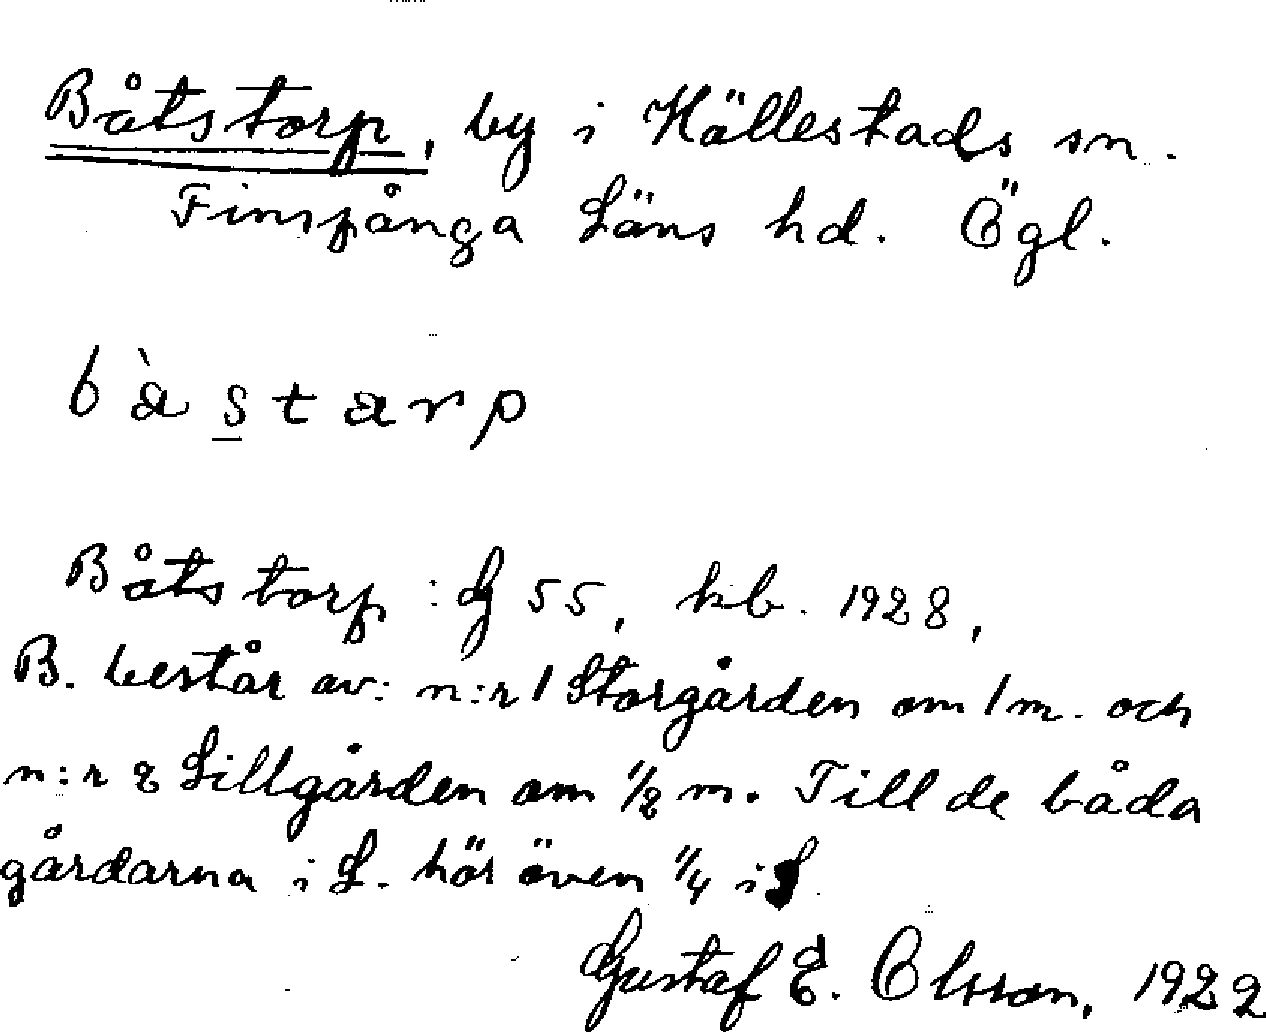 Båtstorp, by i Hällestads sn.
Finspånga Läns hd. Ögl.
bàstarp
Båtstorp : G 55, kb. 1928,
B. består av: n:r 1 Storgården om 1 m. och
n:r 2 Lillgården om 1/2 m. Till de båda
gårdarna i L. hör även 1/4 i
Gustaf E. Olsson, 1922